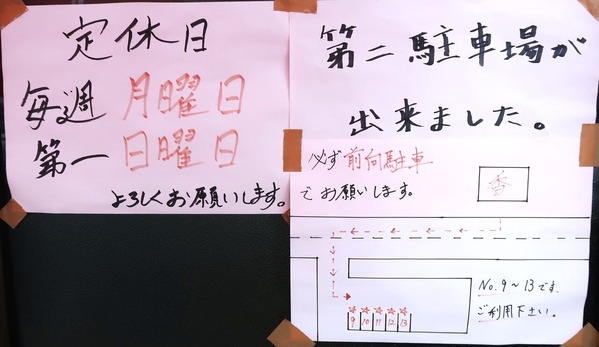 定休日
毎週 月曜日
第一 日曜日
よろしくお願いします。
第二駐車場が
出来ました。
必ず前向駐車
でお願いします。
香
No.9～13です。
ご利用下さい。
9 10 11 12 13